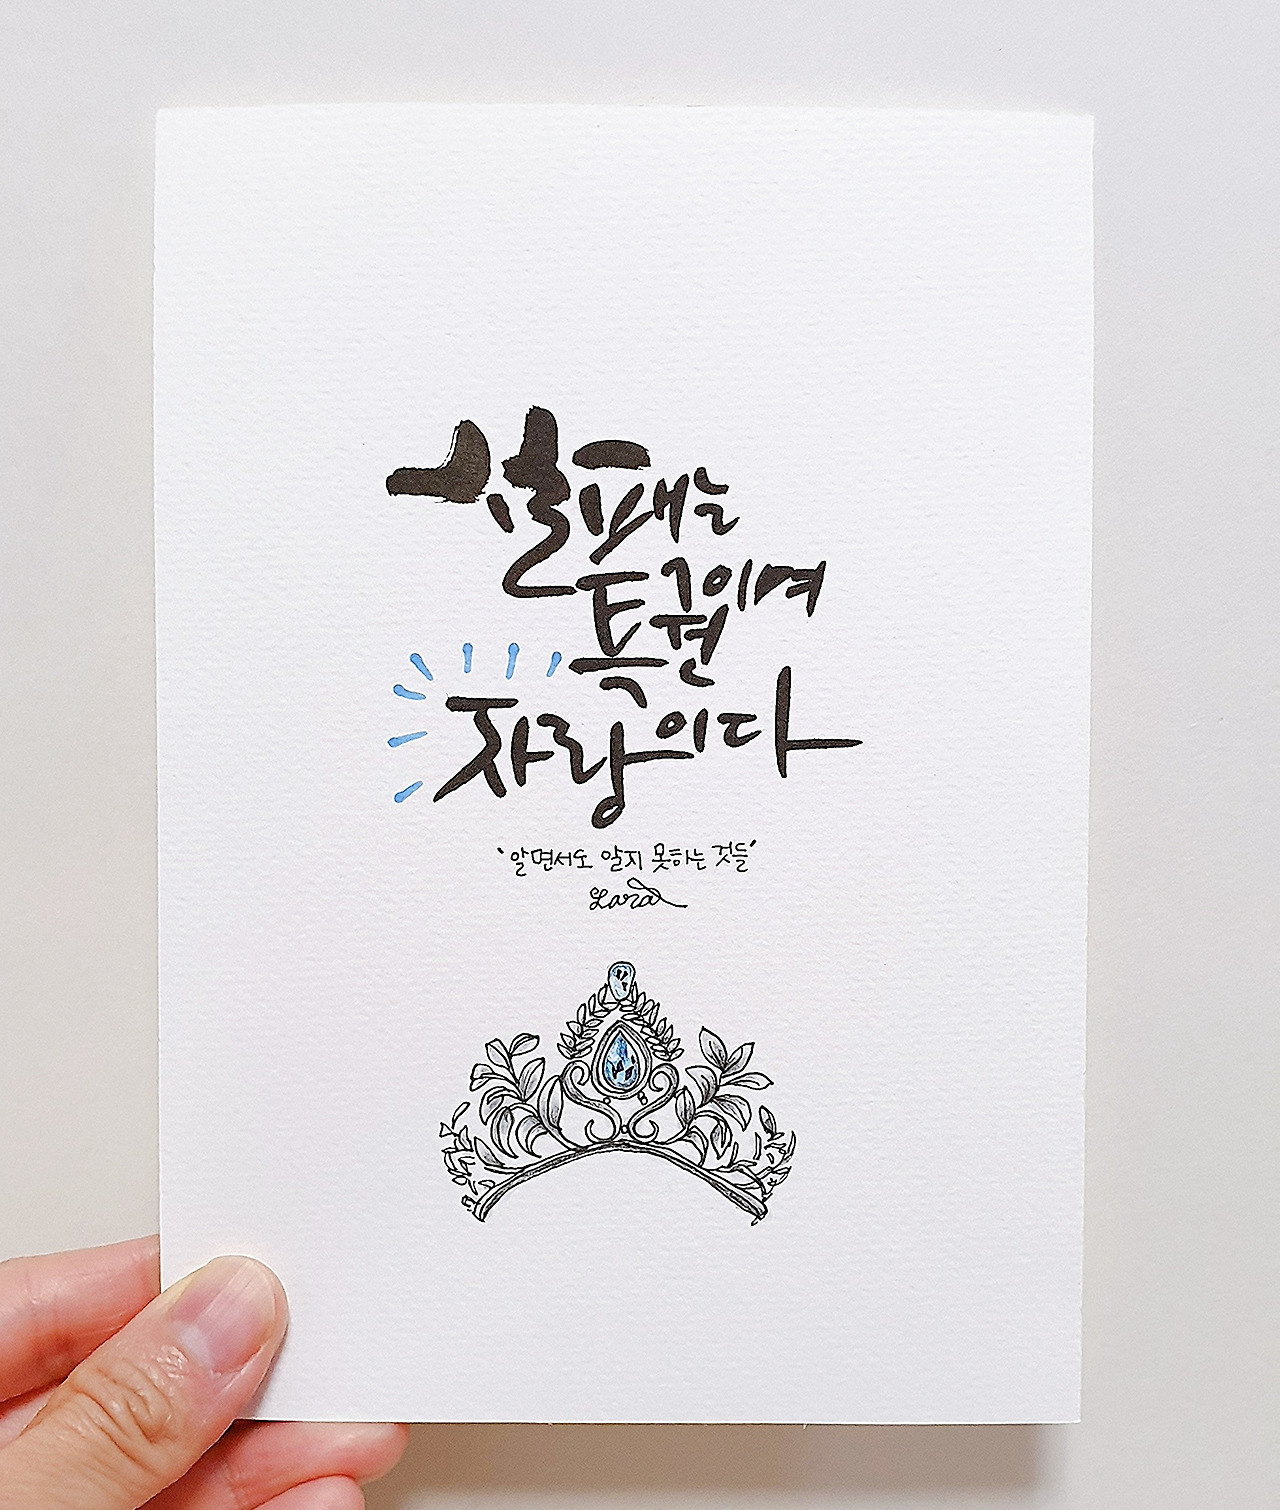 실패는
특권이며
자랑이다
'알면서도 알지 못하는 것들'
Lara